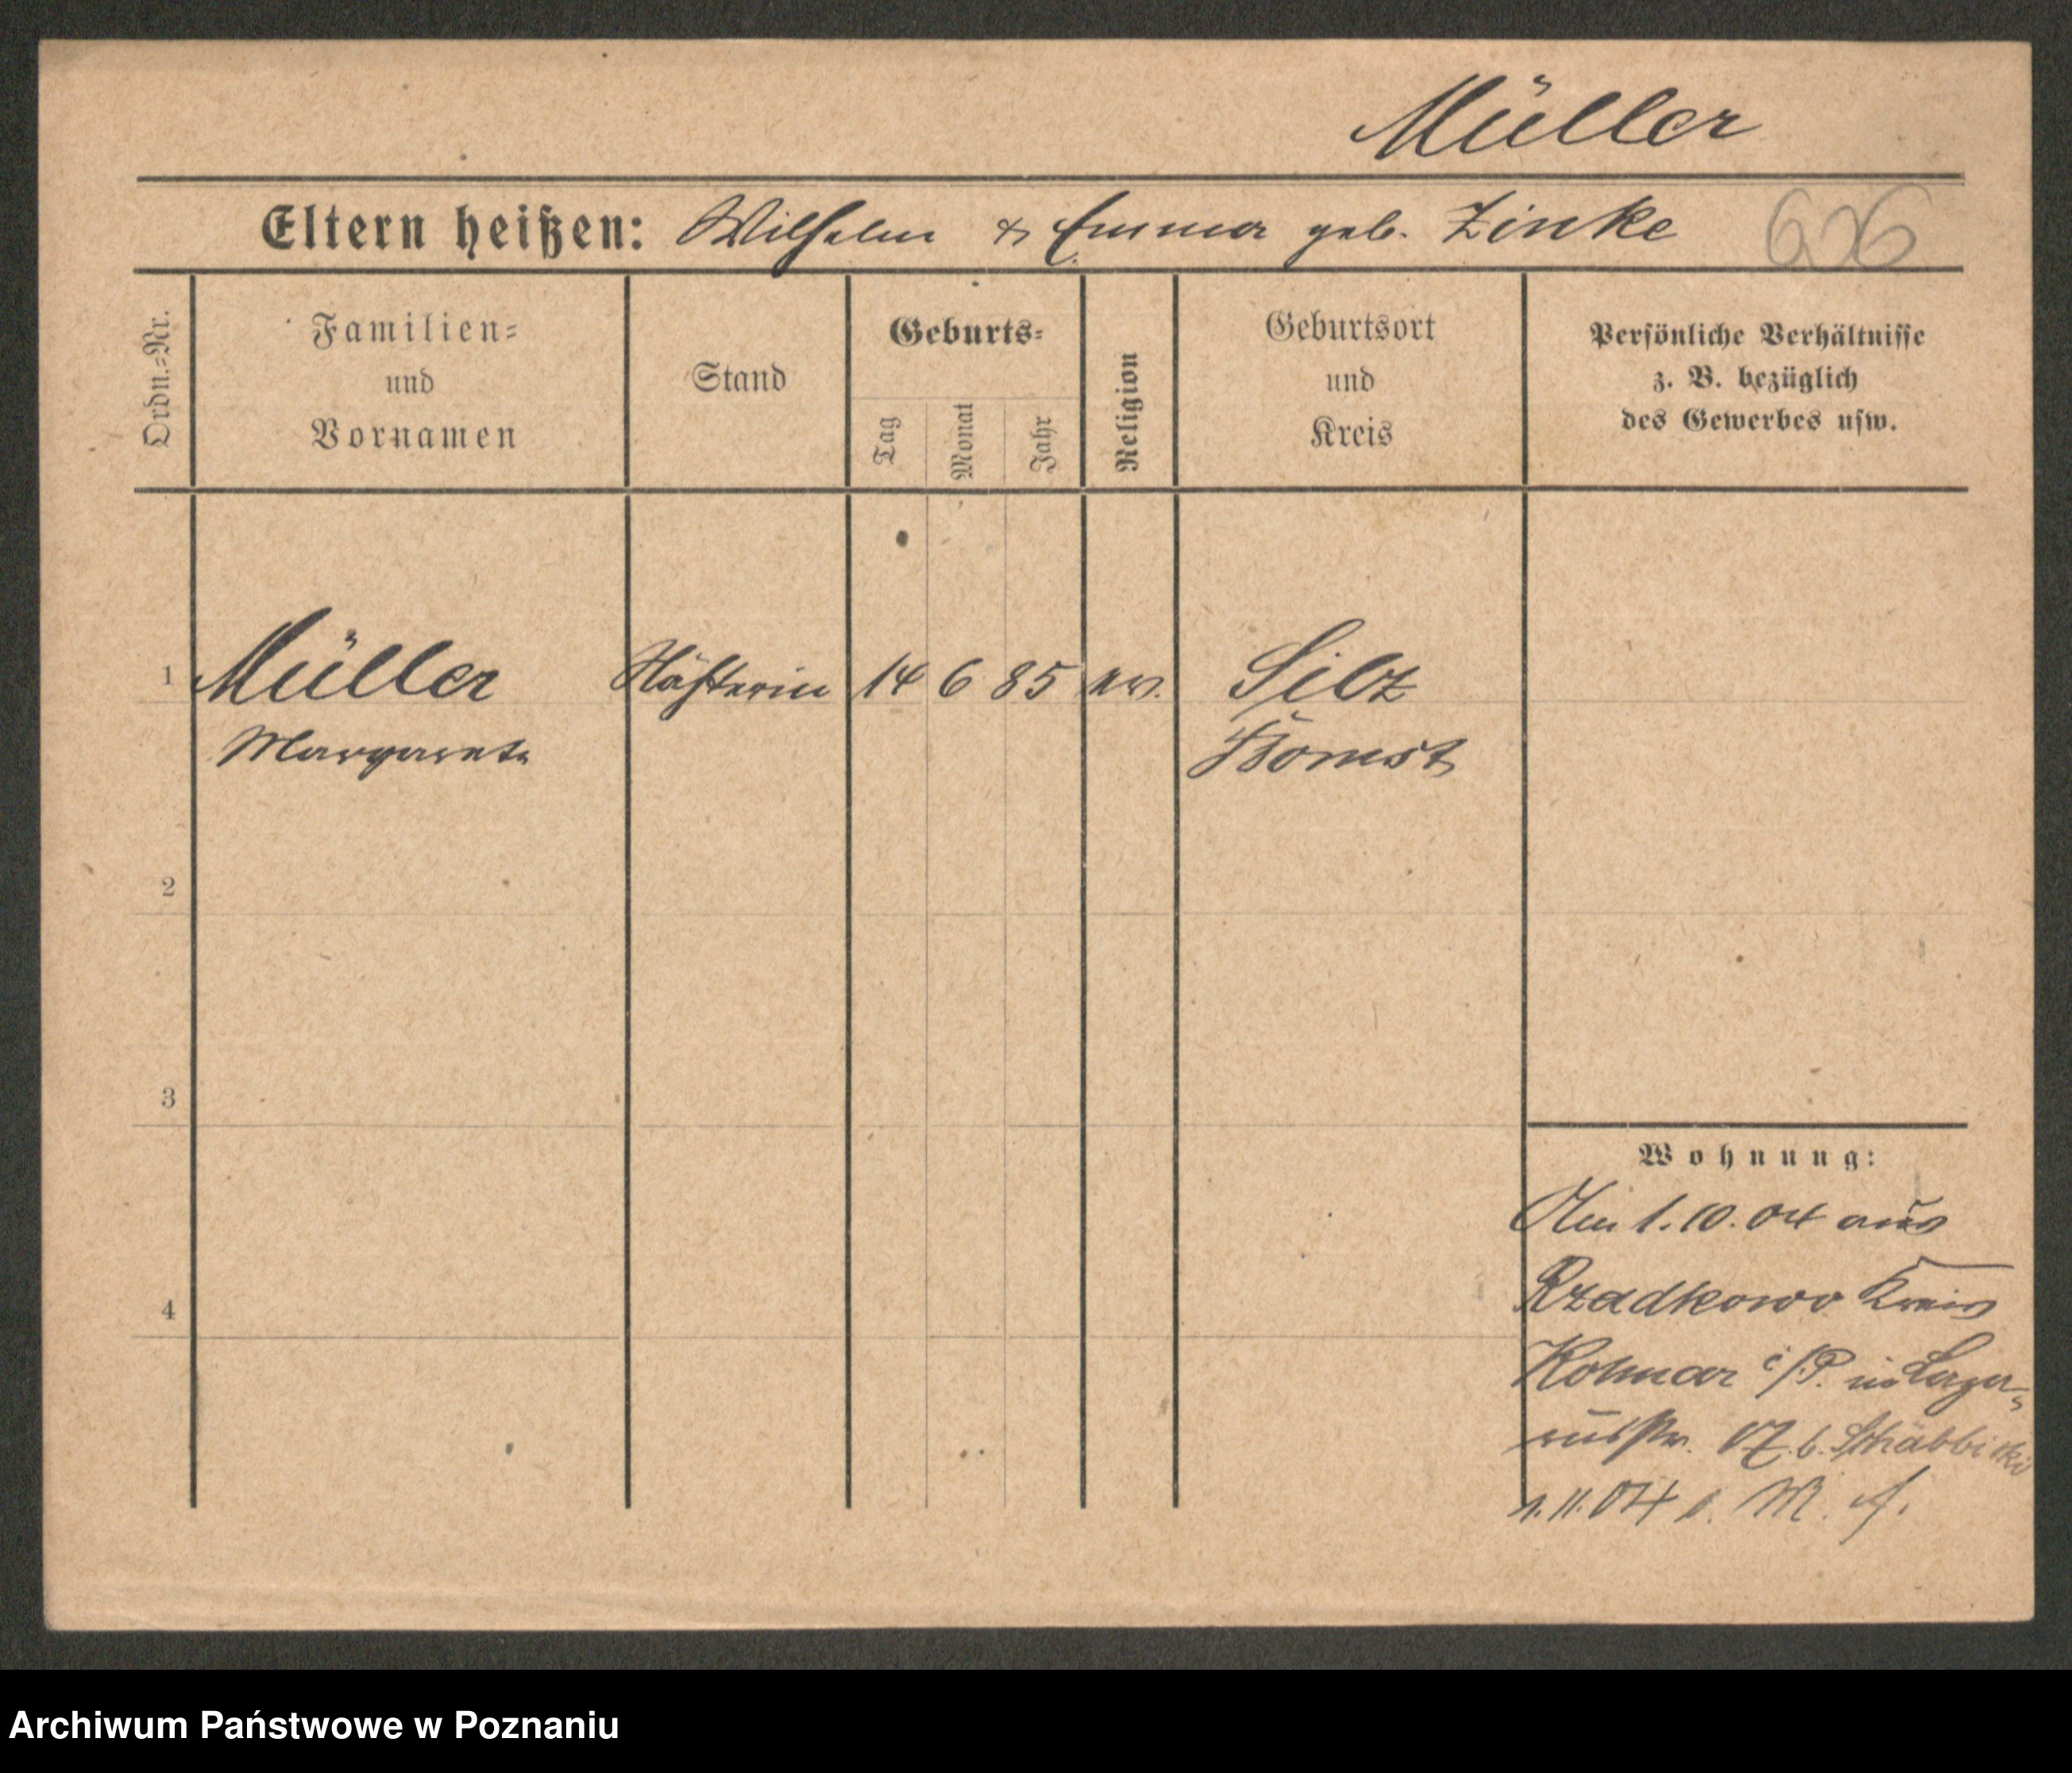 Müller
Eltern heißen: Wilhelm & Emma geb. Zinke 626
Ordn.=Nr.
Familien= und Vornamen
Stand
Geburts=
Tag
Monat
Jahr
Religion
Geburtsort und Kreis
Persönliche Verhältnisse
z. B. bezüglich
des Gewerbes usw.
1 Müller 14 6 85 ev. Silz
Margarete Bomst
2
3
4
Wohnung:
Am 1.10.04 aus
Rzadkowo Kreis
Kolmar i/P.
1.11.04
Archiwum Państwowe w Poznaniu